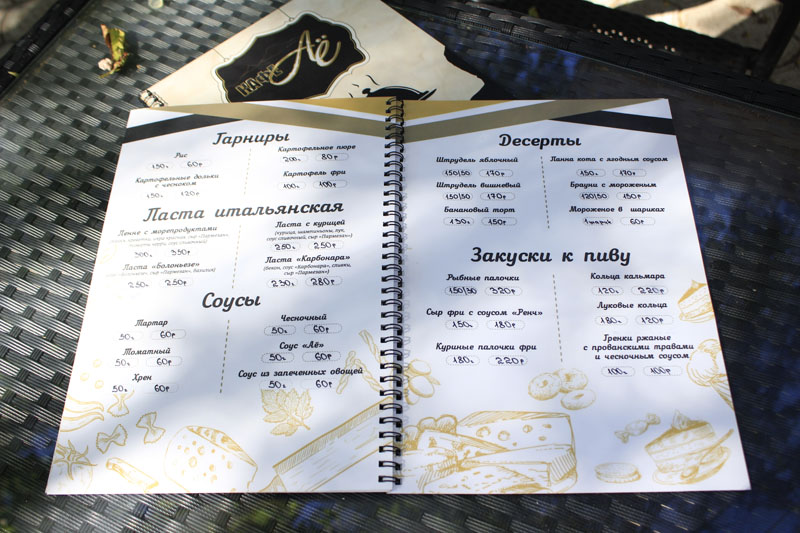 Аё
Гарниры
Рис
150г 60р
Картофельные дольки
с чесноком
150г 120р
Картофельное пюре
200г 80р
Картофель фри
100г 100р
Паста итальянская
Пенне с морепродуктами
300г 350р
Паста «Болоньезе»
250г 250р
Паста с курицей
(курица, шампиньоны, лук,
соус сливочный, сыр «Пармезан»)
250г 250р
Паста «Карбонара»
(бекон, соус «Карбонара», сливки,
сыр «Пармезан»)
230г 280р
Соусы
Тартар
50г 60р
Томатный
50г 60р
Хрен
50г 60р
Чесночный
50г 60р
Соус «Аё»
50г 60р
Соус из запеченных овощей
50г 60р
Десерты
Штрудель яблочный
150/50 170р
Штрудель вишневый
150/50 170р
Банановый торт
130г 150р
Панна кота с ягодным соусом
150г 170р
Брауни с мороженым
120/50 150р
Мороженое в шариках
1шарик 60р
Закуски к пиву
Рыбные палочки
150/30 320р
Сыр фри с соусом «Ренч»
150г 180р
Куриные палочки фри
180г 220р
Кольца кальмара
120г 220р
Луковые кольца
180г 120р
Гренки ржаные
с прованскими травами
и чесночным соусом
100г 100р